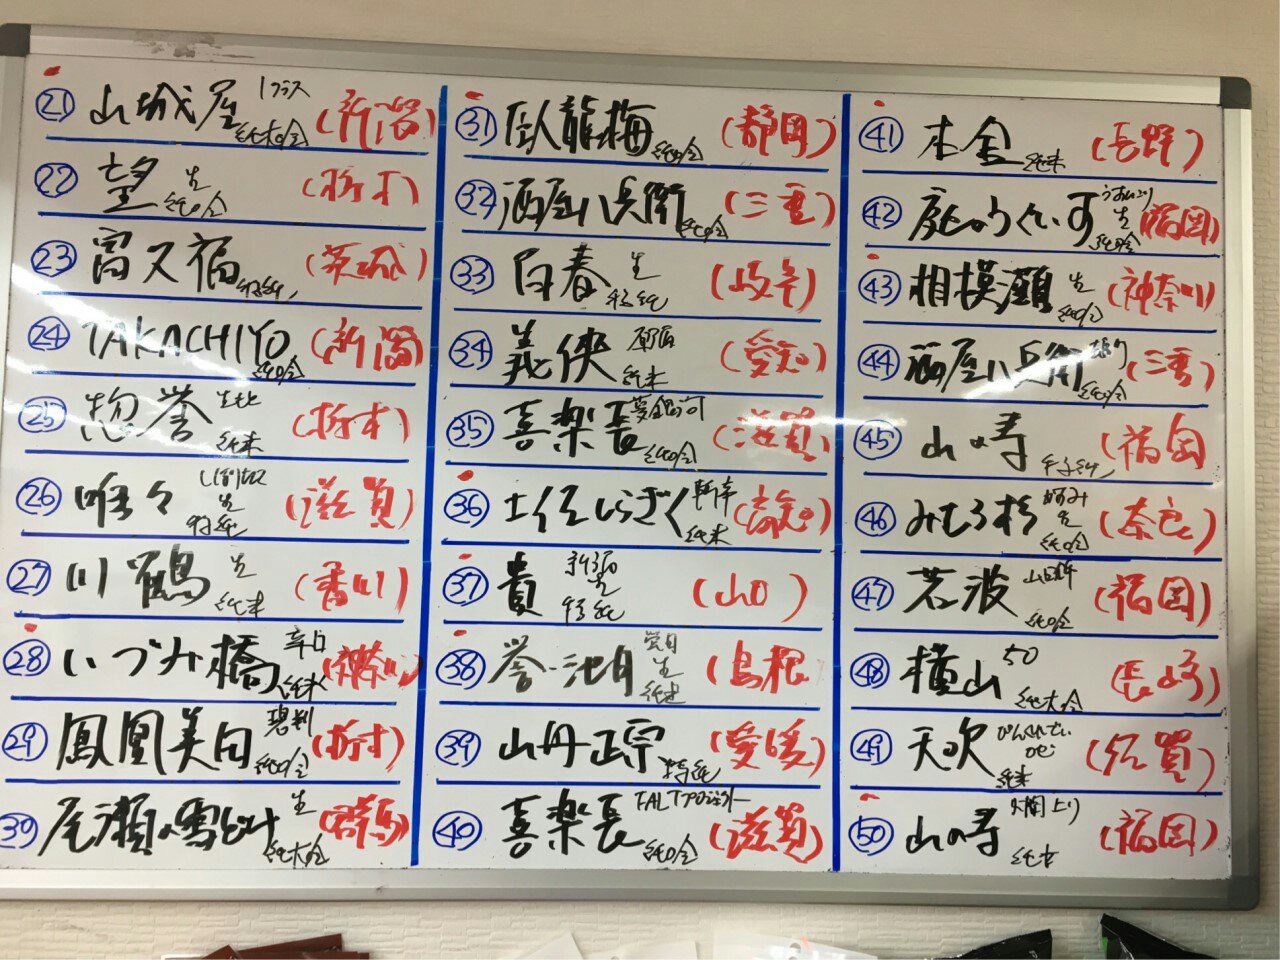 ㉑ 山城屋 1クラス 純米吟 (新潟)
㉒ 望 生 純吟 (栃木)
㉓ 富久福 特純 (茨城)
㉔ TAKACHIYO 純吟 (新潟)
㉕ 惣誉 生酛 純米 (栃木)
㉖ 唯々 しぼりたて 生 特純 (滋賀)
㉗ 川鶴 生 純米 (香川)
㉘ いづみ橋 辛口 純米 (神奈川)
㉙ 鳳凰美田 碧判 純吟 (栃木)
㉚ 尾瀬の雪どけ 生 純大吟 (群馬)
㉛ 臥龍梅 純吟 (静岡)
㉜ 酒屋八兵衛 純吟 (三重)
㉝ 百春 生 特純 (岐阜)
㉞ 義侠 純米 (愛知)
㉟ 喜楽長 夢銀河 純吟 (滋賀)
㊱ 土佐しらぎく 斬辛 純米 (高知)
㊲ 貴 生 特純 (山口)
㊳ 誉池月 生 純米 (島根)
㊴ 山丹正宗 特純 (愛媛)
㊵ 喜楽長 TALTプロジェクト 純吟 (滋賀)
㊶ 本金 純米 (長野)
㊷ 庭のうぐいす うすにごり 生 純吟 (福岡)
㊸ 相模灘 生 純吟 (神奈川)
㊹ 酒屋八兵衛 純吟 (三重)
㊺ 山の寿 特純 (福岡)
㊻ みむろ杉 かすみ 生 純吟 (奈良)
㊼ 若波 山田錦 純吟 (福岡)
㊽ 横山 50 純大吟 (長崎)
㊾ 天吹 純米 (佐賀)
㊿ 山の寿 火閽上り (福岡)